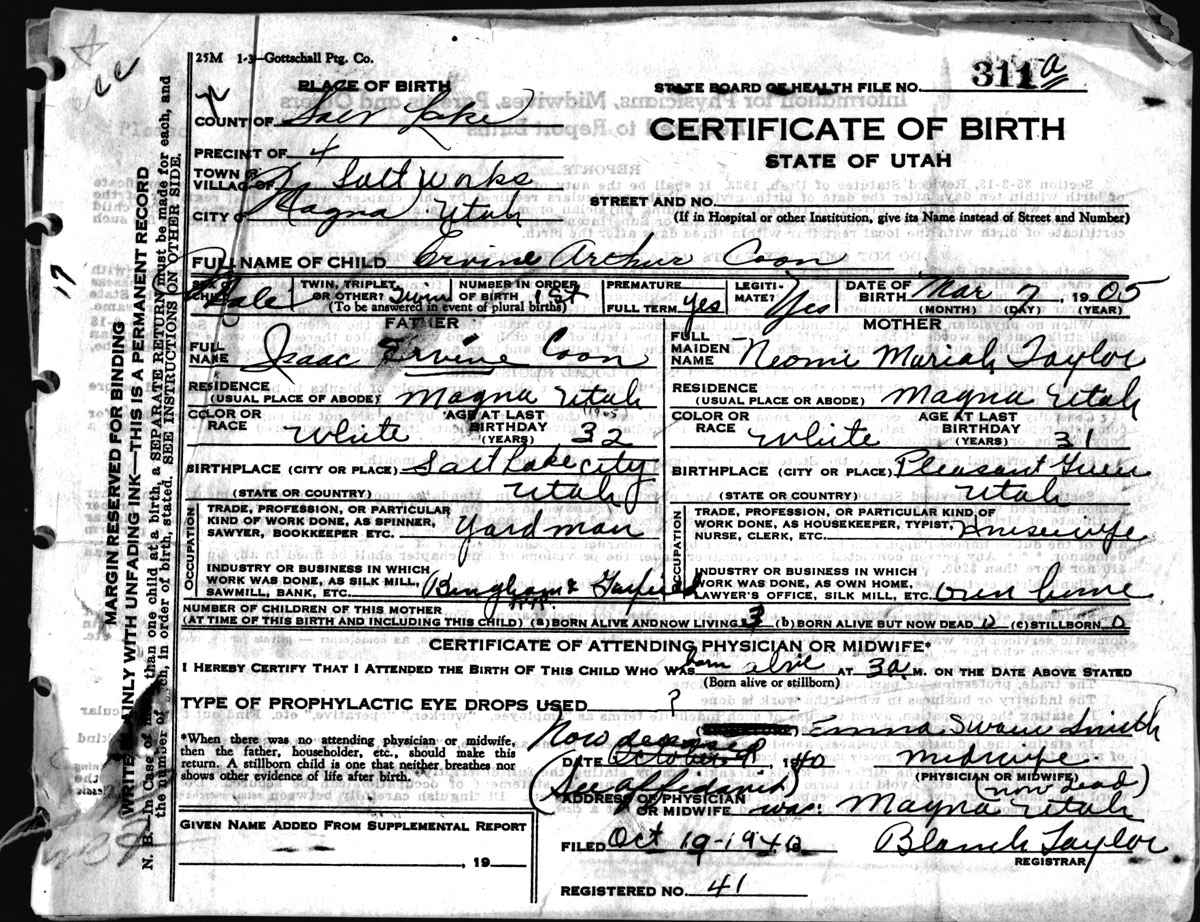 25M 1-3—Gottschall Ptg. Co.
311 a
PLACE OF BIRTH
STATE BOARD OF HEALTH FILE NO.
COUNT OF Salt Lake
CERTIFICATE OF BIRTH
PRECINT OF 4
STATE OF UTAH
TOWN OR
VILLAGE OF Salt Works
STREET AND NO.
CITY OF Magna Utah
(If in Hospital or other Institution, give its Name instead of Street and Number)
FULL NAME OF CHILD Ervine Arthur Coon
Male
TWIN, TRIPLET, OR OTHER? Twin
NUMBER IN ORDER OF BIRTH 1st
(To be answered in event of plural births)
PREMATURE
FULL TERM yes
LEGITI-
MATE? Yes
DATE OF BIRTH Mar 7, 1905
(MONTH) (DAY) (YEAR)
FATHER
FULL NAME Isaac Ervine Coon
RESIDENCE
(USUAL PLACE OF ABODE) Magna Utah
COLOR OR RACE White
AGE AT LAST BIRTHDAY (YEARS) 32
(1905)
BIRTHPLACE (CITY OR PLACE) Salt Lake City
(STATE OR COUNTRY) Utah
OCCUPATION
TRADE, PROFESSION, OR PARTICULAR
KIND OF WORK DONE, AS SPINNER,
SAWYER, BOOKKEEPER ETC. Yardman
INDUSTRY OR BUSINESS IN WHICH
WORK WAS DONE, AS SILK MILL,
SAWMILL, BANK, ETC. Bingham & Garfield
R.R.
MOTHER
FULL MAIDEN NAME Neomi Mariah Taylor
RESIDENCE
(USUAL PLACE OF ABODE) Magna Utah
COLOR OR RACE White
AGE AT LAST BIRTHDAY (YEARS) 31
BIRTHPLACE (CITY OR PLACE) Pleasant Green
(STATE OR COUNTRY) Utah
OCCUPATION
TRADE, PROFESSION, OR PARTICULAR KIND OF
WORK DONE, AS HOUSEKEEPER, TYPIST,
NURSE, CLERK, ETC. Housewife
INDUSTRY OR BUSINESS IN WHICH
WORK WAS DONE, AS OWN HOME,
LAWYER'S OFFICE, SILK MILL, ETC. own home
NUMBER OF CHILDREN OF THIS MOTHER
(AT TIME OF THIS BIRTH AND INCLUDING THIS CHILD) (a) BORN ALIVE AND NOW LIVING 3 (b) BORN ALIVE BUT NOW DEAD 0 (c) STILLBORN 0
CERTIFICATE OF ATTENDING PHYSICIAN OR MIDWIFE*
I HEREBY CERTIFY THAT I ATTENDED THE BIRTH OF THIS CHILD WHO WAS born alive AT 3 a. M. ON THE DATE ABOVE STATED
(Born alive or stillborn)
TYPE OF PROPHYLACTIC EYE DROPS USED ?
*When there was no attending physician or midwife,
then the father, householder, etc., should make this
return. A stillborn child is one that neither breathes nor
shows other evidence of life after birth.
Now deceased Emma Swain Smith
DATE October 9, 1940 midwife
(PHYSICIAN OR MIDWIFE)
(now dead)
(See affidavit)
ADDRESS OF PHYSICIAN
OR MIDWIFE was: Magna Utah
GIVEN NAME ADDED FROM SUPPLEMENTAL REPORT
, 19
FILED Oct 19-1940 Blanch Taylor
REGISTRAR
REGISTERED NO. 41
MARGIN RESERVED FOR BINDING
WRITE ONLY WITH UNFADING INK—THIS IS A PERMANENT RECORD
N. B.—In Case of more than one child at a birth, a SEPARATE RETURN must be made for each, and
the number of each, in order of birth, stated. SEE INSTRUCTIONS ON OTHER SIDE.
17